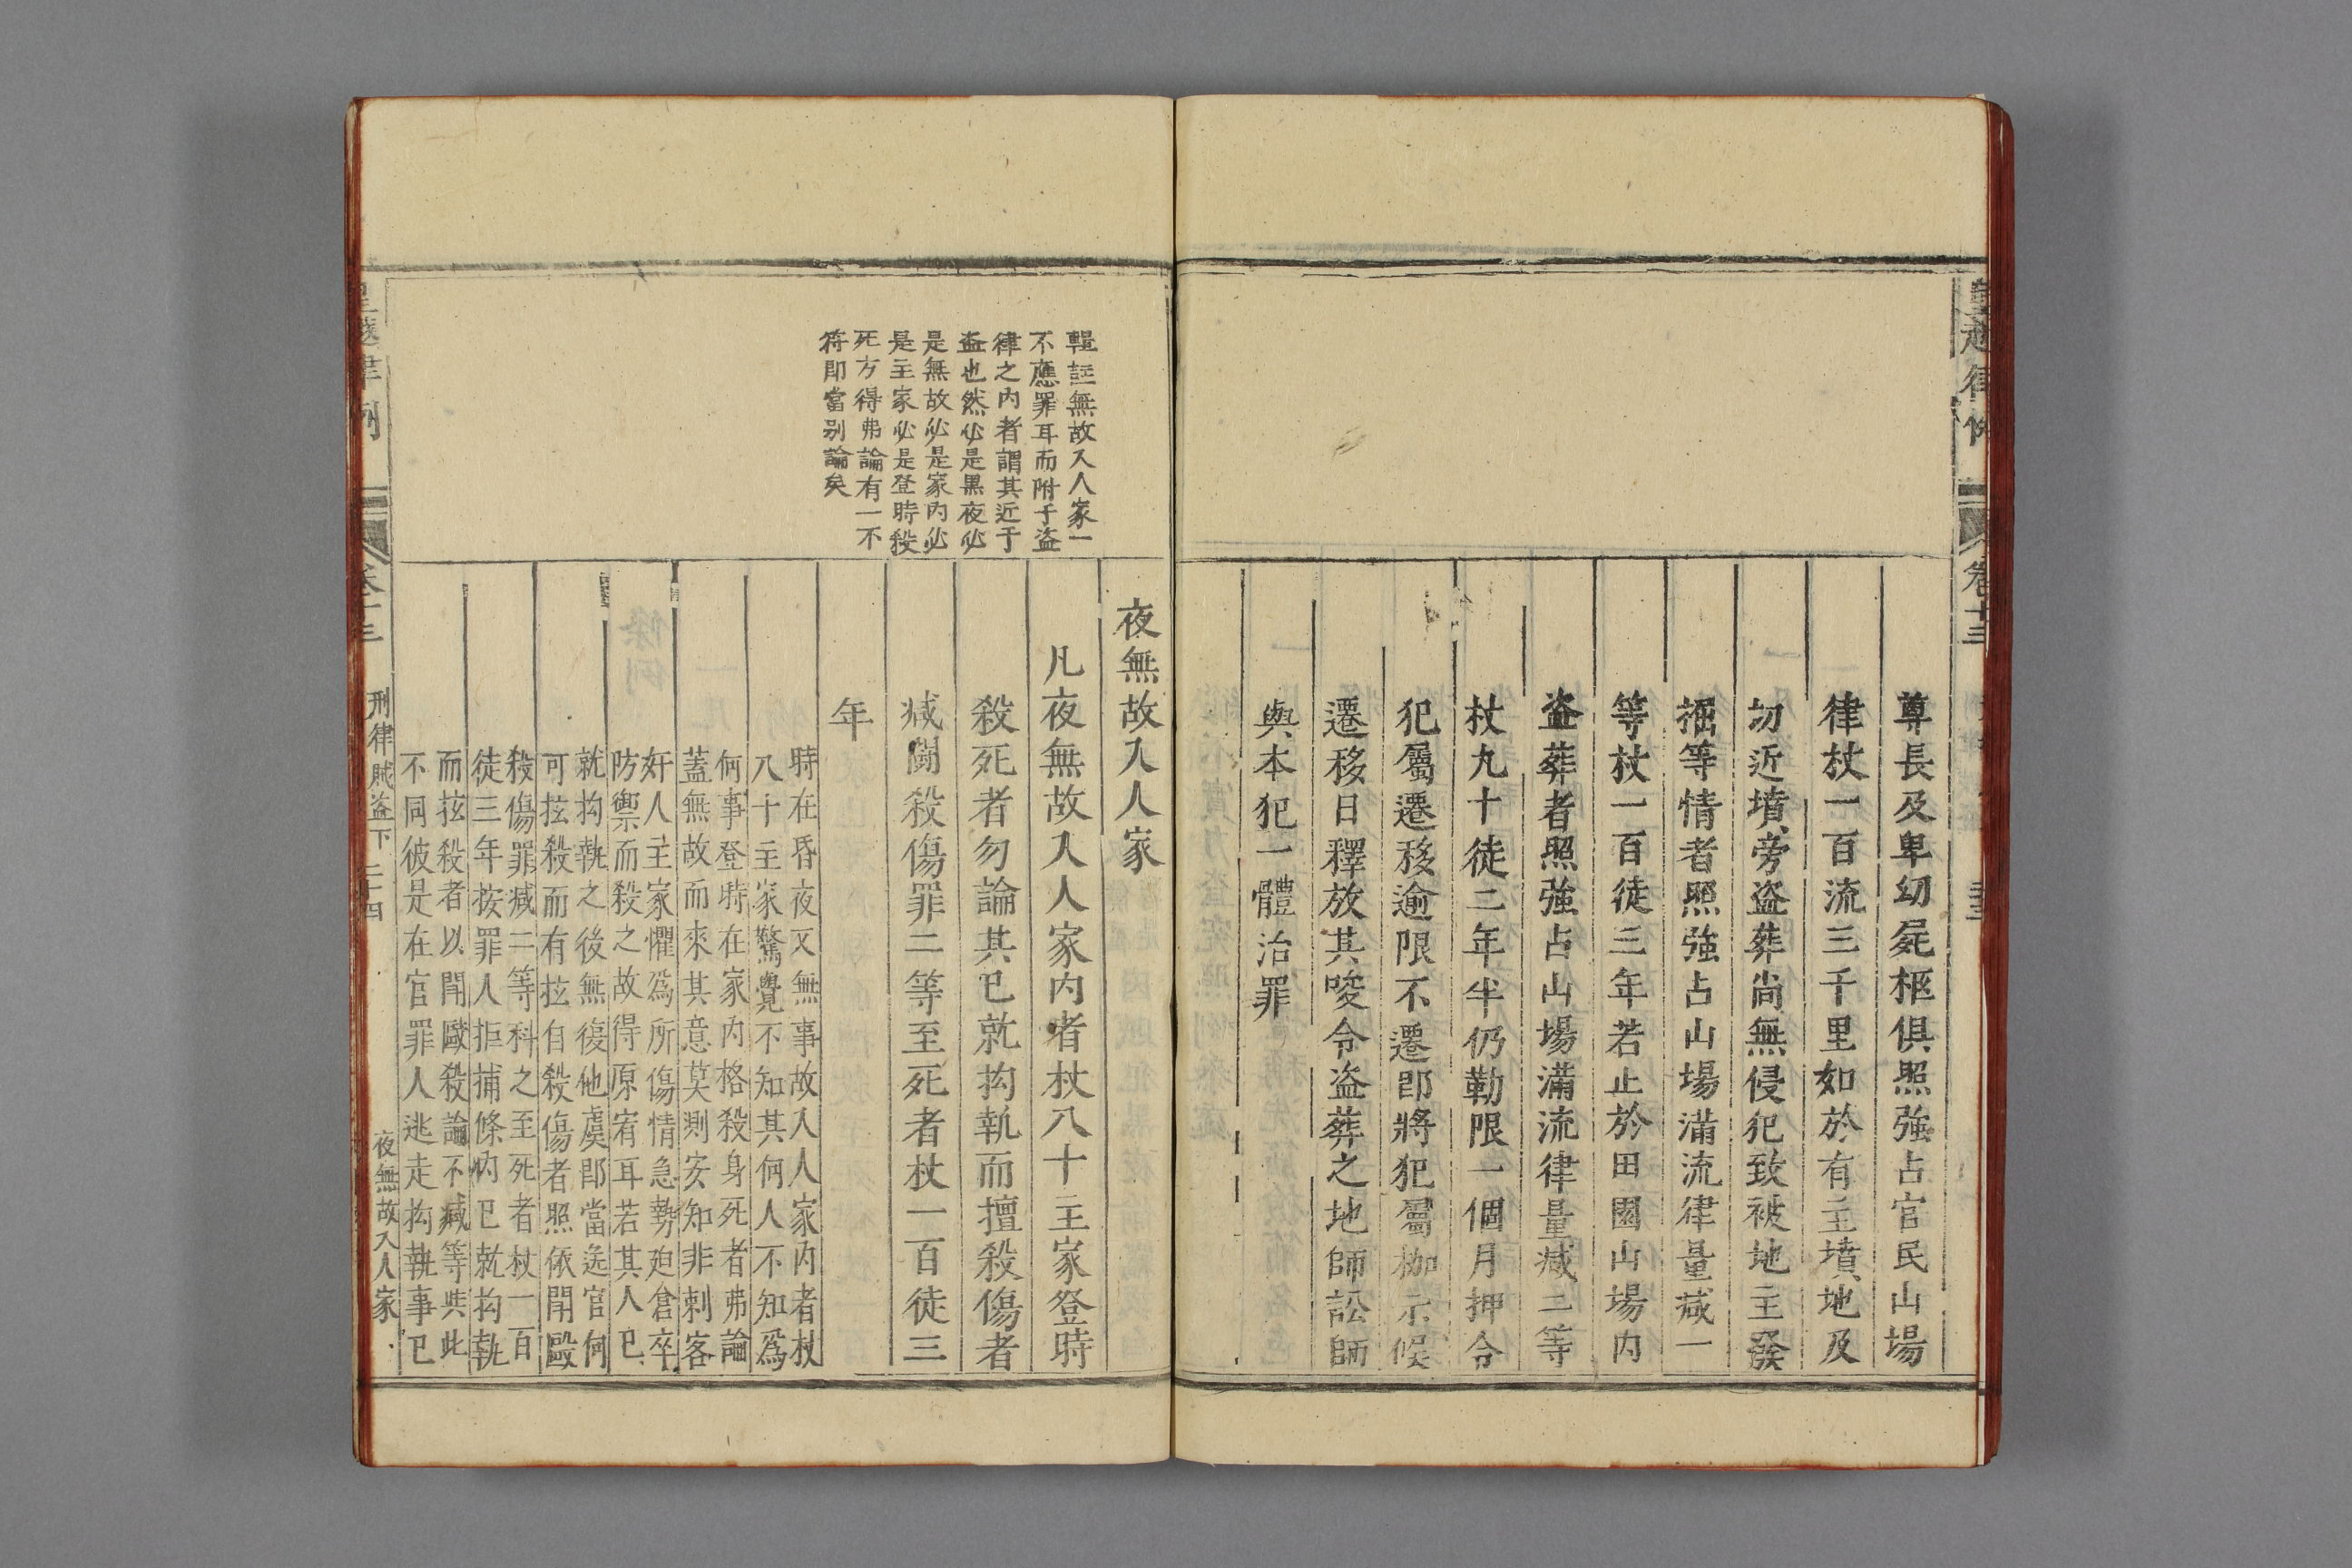 皇越律例
卷十三
尊長及卑幼屍柩俱照強占官民山場
律杖一百流三千里如於有主墳地及
切近墳旁盗葬尚無侵犯致被地主發
掘等情者照強占山場滿流律量减一
等杖一百徒三年若止於田園山場内
盗葬者照強占山場滿流律量减二等
杖九十徒二年半仍勒限一個月押令
犯屬遷移逾限不遷即將犯屬枷示候
遷移日釋放其唆令盗葬之地師訟師
與本犯一體治罪
輯註無故入人家一
不應罪耳而附于盗
律之内者謂其近于
盗也然必是黒夜必
是無故必是家内必
是主家必是登時殺
死方得弗論有一不
符即當别論矣
夜無故入人家
凡夜無故入人家内者杖八十主家登時
殺死者勿論其已就拘執而擅殺傷者
减鬪殺傷罪二等至死者杖一百徒三
年
時在昏夜又無事故入人家内者杖
八十主家驚覺不知其何人不知爲
何事登時在家内格殺身死者弗論
蓋無故而來其意莫測安知非刺客
奸人主家懼爲所傷情急勢廹倉卒
防禦而殺之故得原宥耳若其人已
就拘執之後無復他虞即當送官何
可㧓殺而有㧓自殺傷者照依開毆
殺傷罪减二等科之至死者杖一百
徒三年按罪人拒捕條内已就拘執
而㧓殺者以鬪毆殺論不减等與此
不同彼是在官罪人逃走拘執事已
皇越律例
卷十三
刑律賊盗下
二十四
夜無故入人家